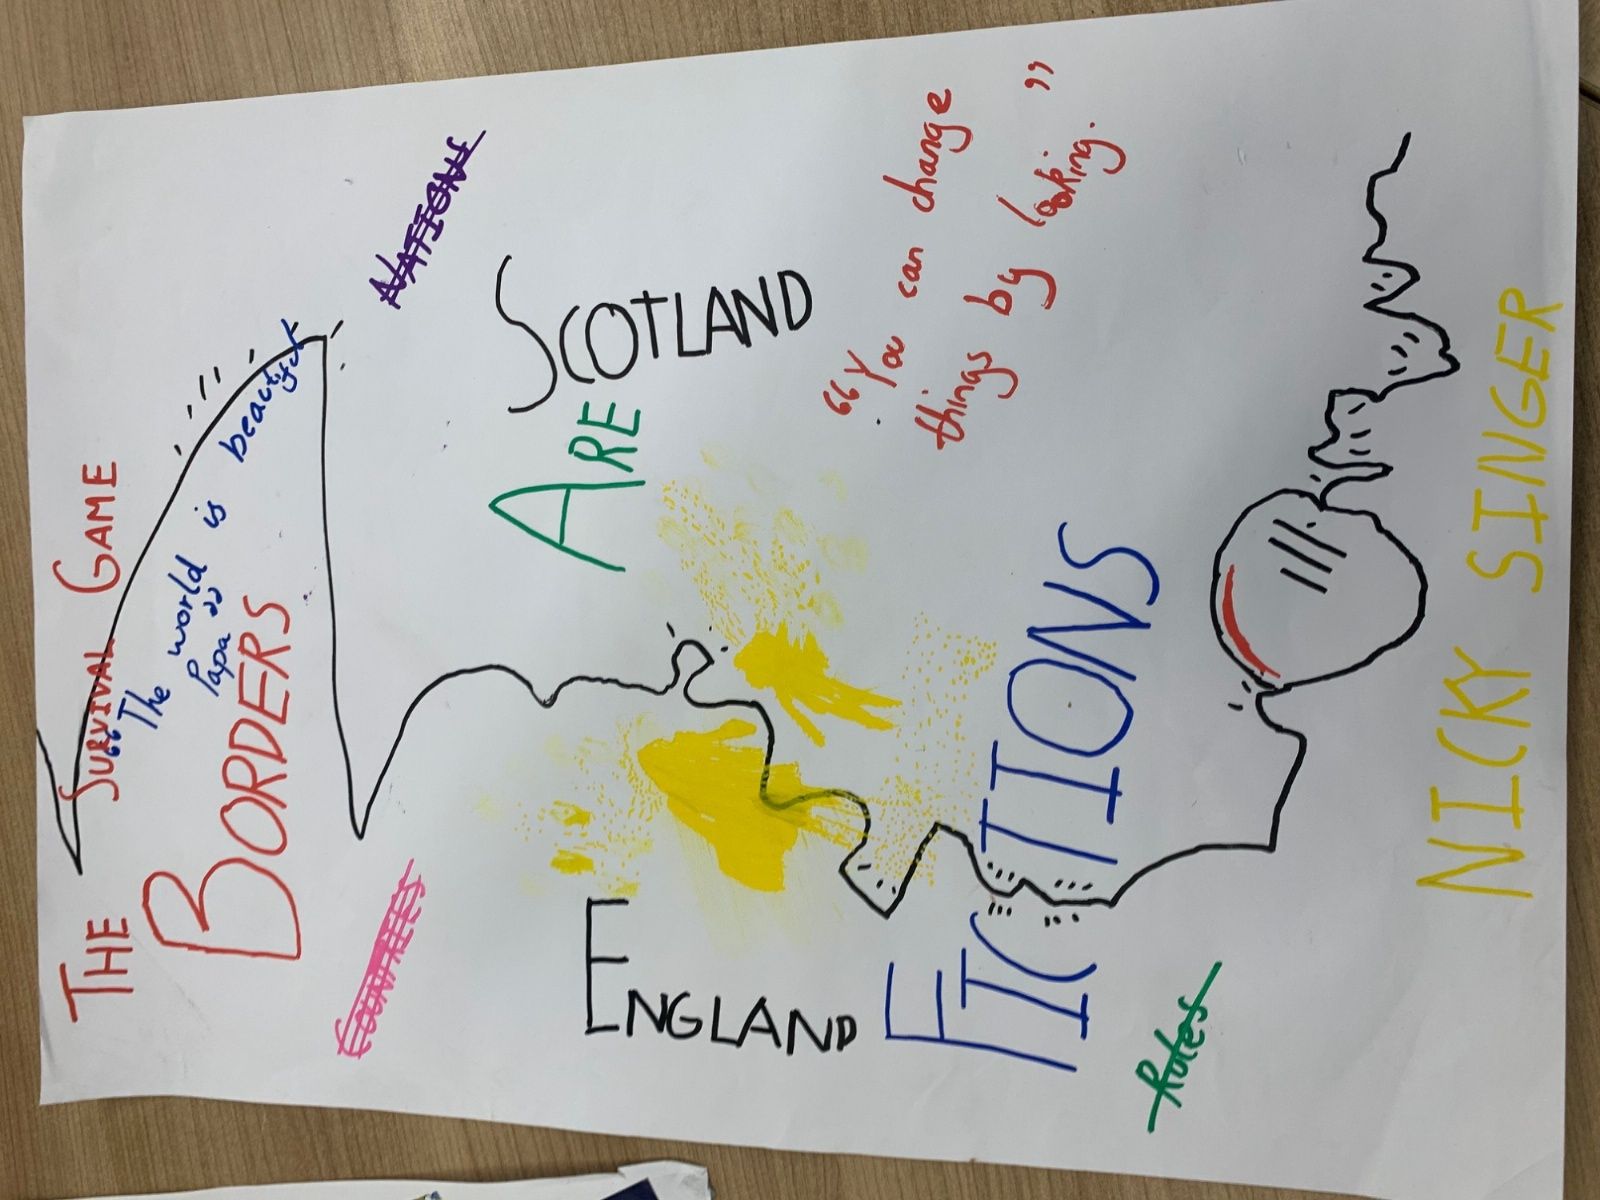 THE SURVIVAL GAME
"The world is beautiful
Papa"
BORDERS
NATIONS
COUNTRIES
SCOTLAND
ARE
ENGLAND
"You can change
things by looking."
FICTIONS
Rules
NICKY SINGER